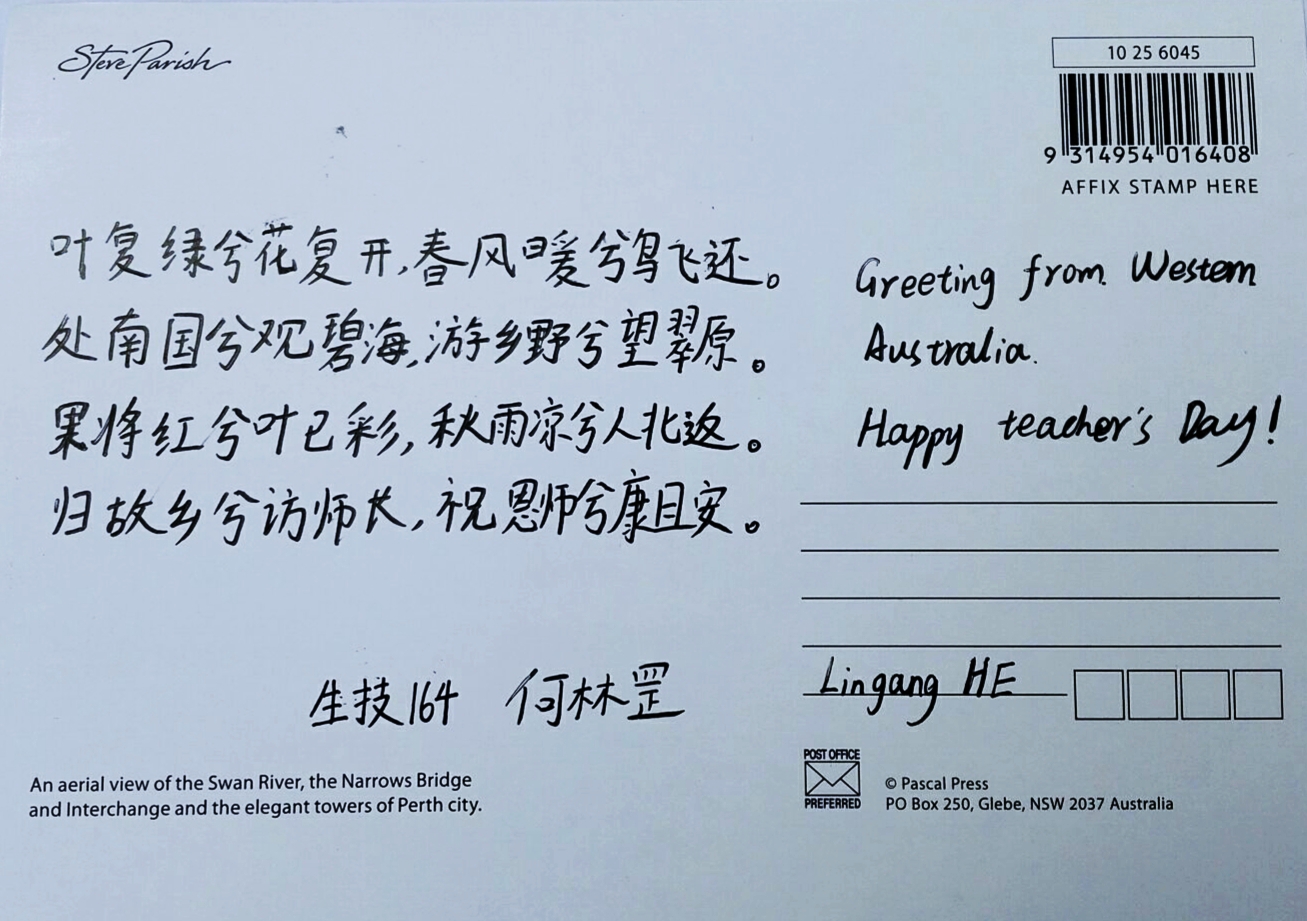 Steve Parish
10 25 6045
9 314954 016408
AFFIX STAMP HERE
叶复绿兮花复开,春风暖兮鸟飞还。
处南国兮观碧海,游乡野兮望翠原。
果将红兮叶已彩,秋雨凉兮人北返。
归故乡兮访师长,祝恩师兮康且安。
生技164 何林罡
Greeting from Western
Australia.
Happy teacher's Day!
Lingang HE
An aerial view of the Swan River, the Narrows Bridge
and Interchange and the elegant towers of Perth city.
POST OFFICE
PREFERRED
© Pascal Press
PO Box 250, Glebe, NSW 2037 Australia